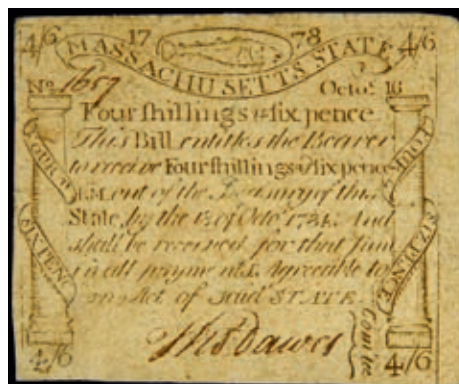 4/6 17 78 4/6
MASSACHUSETTS STATE
No. 1657 Octor. 16
Four shillings & six pence
This Bill entitles the Bearer
to receive Four shillings & six pence
L.M. out of the Treasury of this
State, by the of Octor. 1784. And
shall be received for that sum
in all payments. Agreeable to
an Act of said STATE.
Thos Dawes
Comtee
FOUR SH
SIX PENC
FOUR S
SIX PENCE
4/6 4/6